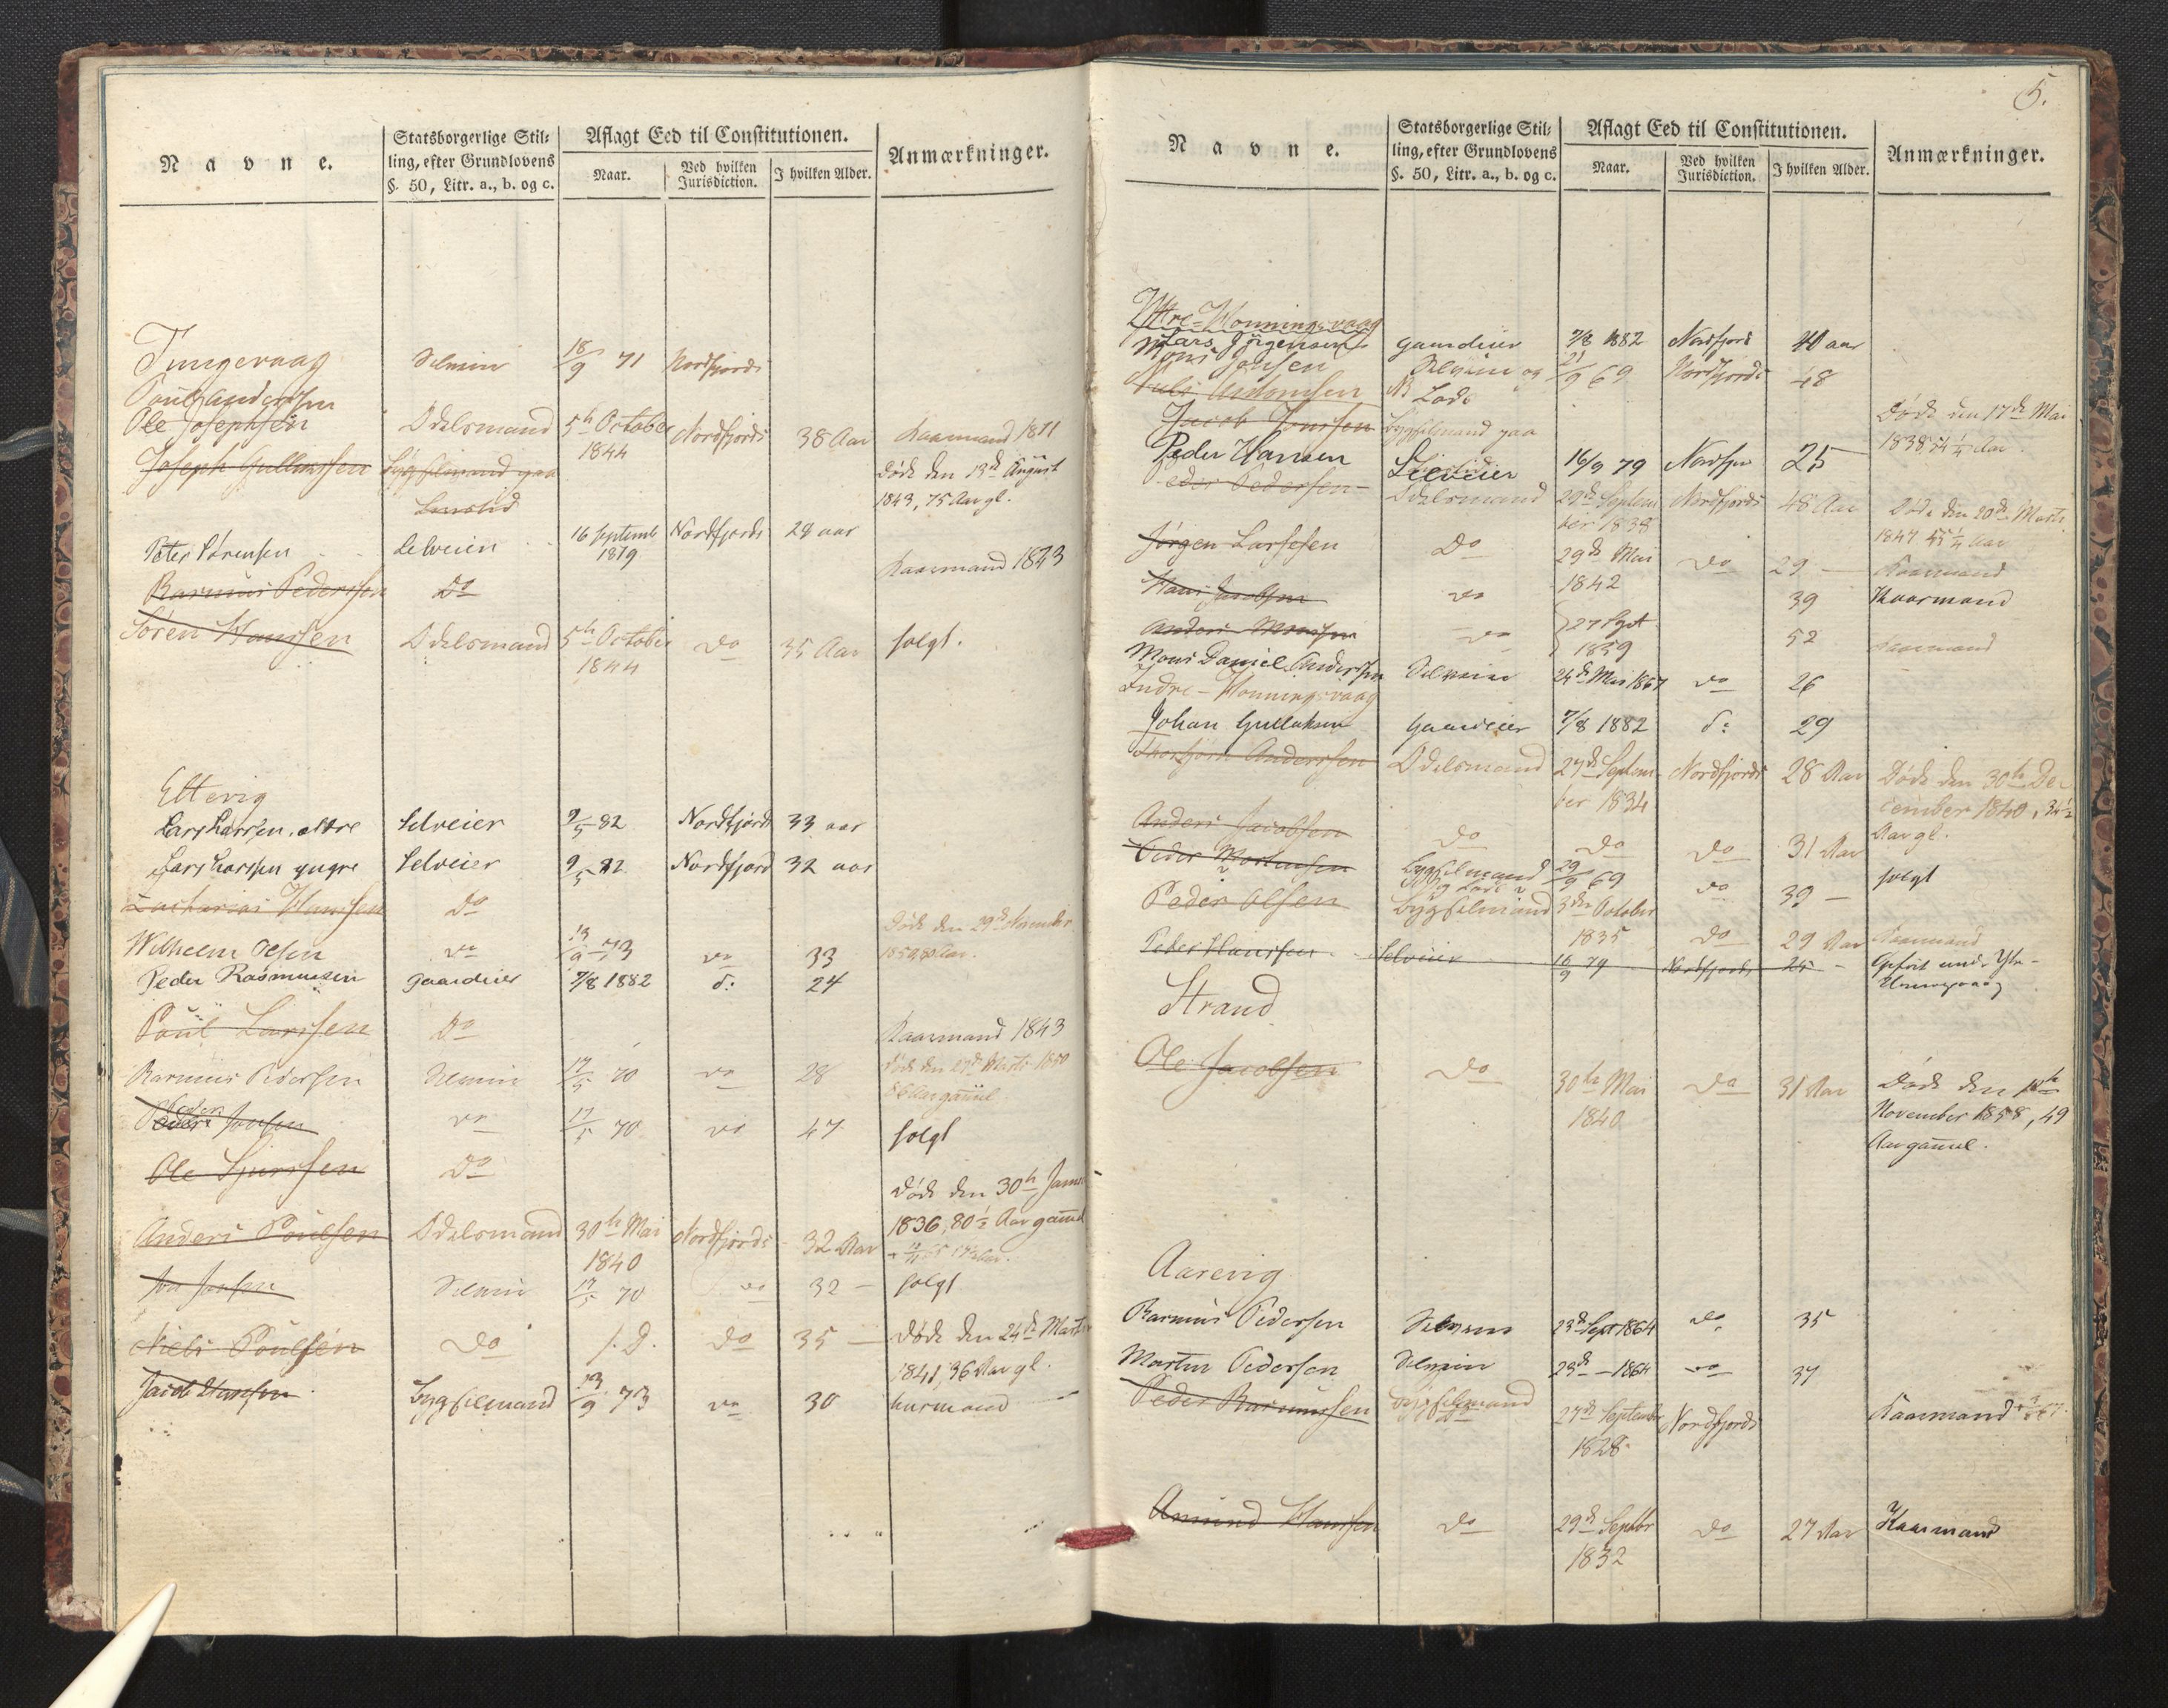 Navne.
Statsborgerlige Stil-
ling, efter Grundlovens
§. 50, Litr. a., b. og c.
Aflagt Eed til Constitutionen.
Naar.
Ved hvilken
Jurisdiction.
I hvilken Alder.
Anmærkninger.
Tungevaag
Selveier 18/9 71 Nordfjords
Poul Anderssen
Ole Josephsen Odelsmand 5te October Nordfjords 38 Aar Kaarmand 1871
1844
Joseph Gullacksen Bygselmand paa Døde den 13de August
1843, 75 Aar gl.
Peter Sørensen Selveien 16 Septemb Nordfjords 29 aar
1879
Kaarmand 1843
Rasmus Pederssen Do
Søren Hanssen Odelsmand 5te October Do 35 Aar solgt.
1844
Eltevig
Lars Larssen ældre Selveier 9/5 82 Nordfjord 33 aar
Lars Larssen yngre Selveier 9/5 82 Nordfjord 32 aar
Zacharias Hanssen Do
Døde den 29de November
Wilhelm Olsen Do 13/9 73 Do 33
Peder Rasmussen Gaardeier 7/8 1882 d: 24
Poul Larssen Do Kaarmand 1843
Rasmus Pedersen Selveier 17/5 70 Do 28 Døde den 27de Marts 1850
86 Aar gammel
Peder Jonsen Do 17/5 70 Do 47 solgt
Ole Sjurssen Do
Døde den 30te Janu
1836, 80½ Aar gamel
Anders Poulsen Odelsmand 30te Mai Nordfjords 32 Aar
1840
Jon Jonsen Selveier 17/5 70 Do 32 — solgt
Niels Poulsen Do s. D. Do 35 — Døde den 24de Marts
1841, 36 Aar gl.
Jacob Hanssen Bygselmand 13/9 73 Do 30 husmand
5.
Navne.
Statsborgerlige Stil-
ling, efter Grundlovens
§. 50, Litr. a., b. og c.
Aflagt Eed til Constitutionen.
Naar.
Ved hvilken
Jurisdiction.
I hvilken Alder.
Anmærkninger.
Ytre-Honningsvaag
Lars Jørgensen gaardeier 7/8 1882 Nordfjord 40 aar
Mons Jonsen Selveier og 21/9 69 Nordfjords 48
Lods
Jacob Jonssen Bygselmand paa Døde den 17de Mai
1838, 54¼ Aar
Peder Hansen Selveier 16/9 79 Nordfjor 25
Peder Pedersen Odelsmand 29de Septem Nordfjords 48 Aar Døde den 20de Marts
ber 1838
Jørgen Larssen Do 29de Mai Do 29 — Kaarmand
1842
Hans Jacobsen Do 39 Kaarmand
27 Sept
Anders Monssen Do 52 Kaarmand
1859
Mons Daniel Anderssen Selveier 24de Mai 1867 Do 26
Indre-Honningsvaag
Johan Gullaksen Gaardeier 7/8 1882 d: 29
Thorbjørn Anderssen Odelsmand 27de Septem Nordfjords 28 Aar Døde den 30te De
ber 1834
cember 1840, 34½
Aar gl.
Anders Jacobsen Do Do Do 31 Aar
Peder Mortensen Bygselmand 29/9 69 Do 39 — solgt
og Lods
Peder Olsen Bygselmand 3die October
1835 Do 29 Aar Kaarmand
Peder Hanssen Selveier 16/9 79 Nordfjords 25 Opført under Ytr-
Strand
Ole Jacobsen Do 30te Mai Do 31 Aar Døde den
1840
November 1858, 49
Aar gammel.
Aarevig
Rasmus Pedersen Selveier 23de Sept 1864 Do 35
Martin Pedersen Selveier 23de — 1864 Do 37
Peder Rasmussen Bygselmand 27de September Nordfjords Kaarmand
1828
Amund Hanssen Do 29de Septbr Do 27 Aar Kaarmand
1832